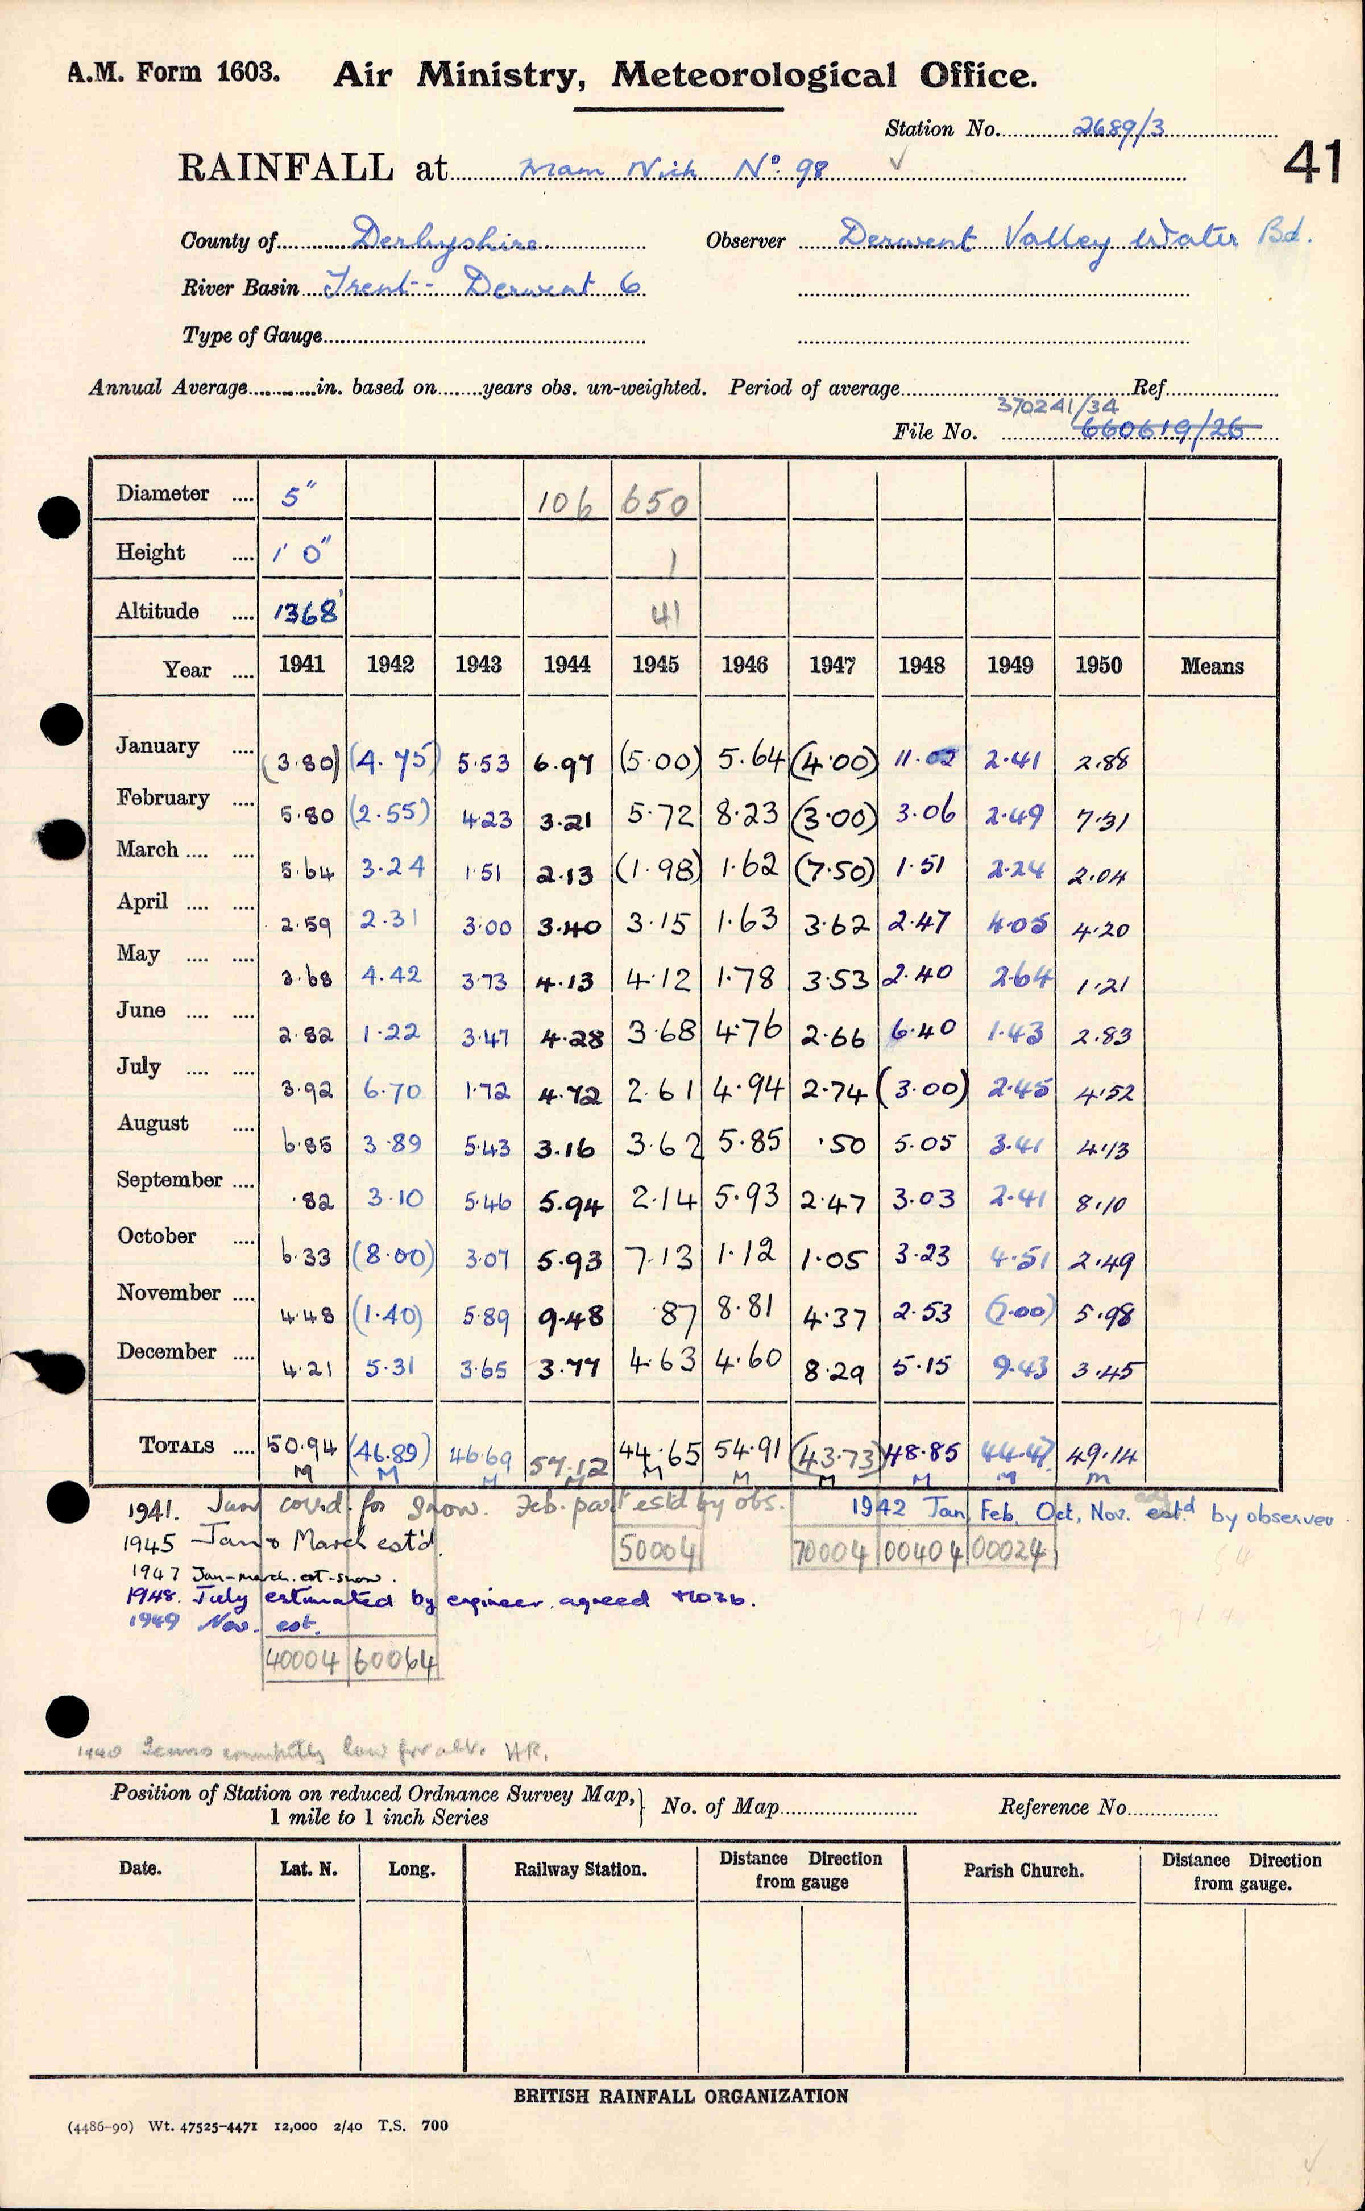 A.M. Form 1603. Air Ministry, Meteorological Office.
Station No. 2689/3
RAINFALL at Mam Nick No. 98 ✓
41
County of Derbyshire Observer Derwent Valley Water Bd.
River Basin Trent - Derwent 6
Type of Gauge
Annual Average in. based on years obs. un-weighted. Period of average Ref
370241/34
File No. 660619/26
Diameter .... 5" 106 650
Height .... 1' 0" 1
Altitude .... 1368' 41
Year .... 1941 1942 1943 1944 1945 1946 1947 1948 1949 1950 Means
January .... (3.80) (4.75) 5.53 6.97 (5.00) 5.64 (4.00) 11.02 2.41 2.88
February .... 5.80 (2.55) 4.23 3.21 5.72 8.23 (3.00) 3.06 2.49 7.31
March .... .... 5.64 3.24 1.51 2.13 (1.98) 1.62 (7.50) 1.51 2.24 2.04
April .... .... 2.59 2.31 3.00 3.40 3.15 1.63 3.62 2.47 4.05 4.20
May .... .... 3.68 4.42 3.73 4.13 4.12 1.78 3.53 2.40 2.64 1.21
June .... .... 2.82 1.22 3.47 4.28 3.68 4.76 2.66 6.40 1.43 2.83
July .... .... 3.92 6.70 1.72 4.72 2.61 4.94 2.74 (3.00) 2.45 4.52
August .... 6.85 3.89 5.43 3.16 3.62 5.85 .50 5.05 3.41 4.13
September .... .82 3.10 5.46 5.94 2.14 5.93 2.47 3.03 2.41 8.10
October .... 6.33 (8.00) 3.07 5.93 7.13 1.12 1.05 3.23 4.51 2.49
November .... 4.48 (1.40) 5.89 9.48 .87 8.81 4.37 2.53 (7.00) 5.98
December .... 4.21 5.31 3.65 3.77 4.63 4.60 8.29 5.15 9.43 3.45
TOTALS .... 50.94 (46.89) 46.69 57.12 44.65 54.91 (43.73) 48.85 44.47 49.14
M M M M M M M M M M
1941. Jan corrd. for Snow. Feb. part est'd by obs. 1942 Jan, Feb, Oct, Nov. est.d by observer
1945 Jan & March est'd.
50004 70004 00404 00024
1947 Jan-March. est. snow.
1948. July estimated by engineer, agreed M.O.3b.
1949 Nov. est.
40004 60064
1940 Seems low for alt. HR.
Position of Station on reduced Ordnance Survey Map, 1 mile to 1 inch Series } No. of Map Reference No.
Date. Lat. N. Long. Railway Station. Distance Direction from gauge Parish Church. Distance Direction from gauge.
BRITISH RAINFALL ORGANIZATION
(4486-90) Wt. 47525-4471 12,000 2/40 T.S. 700